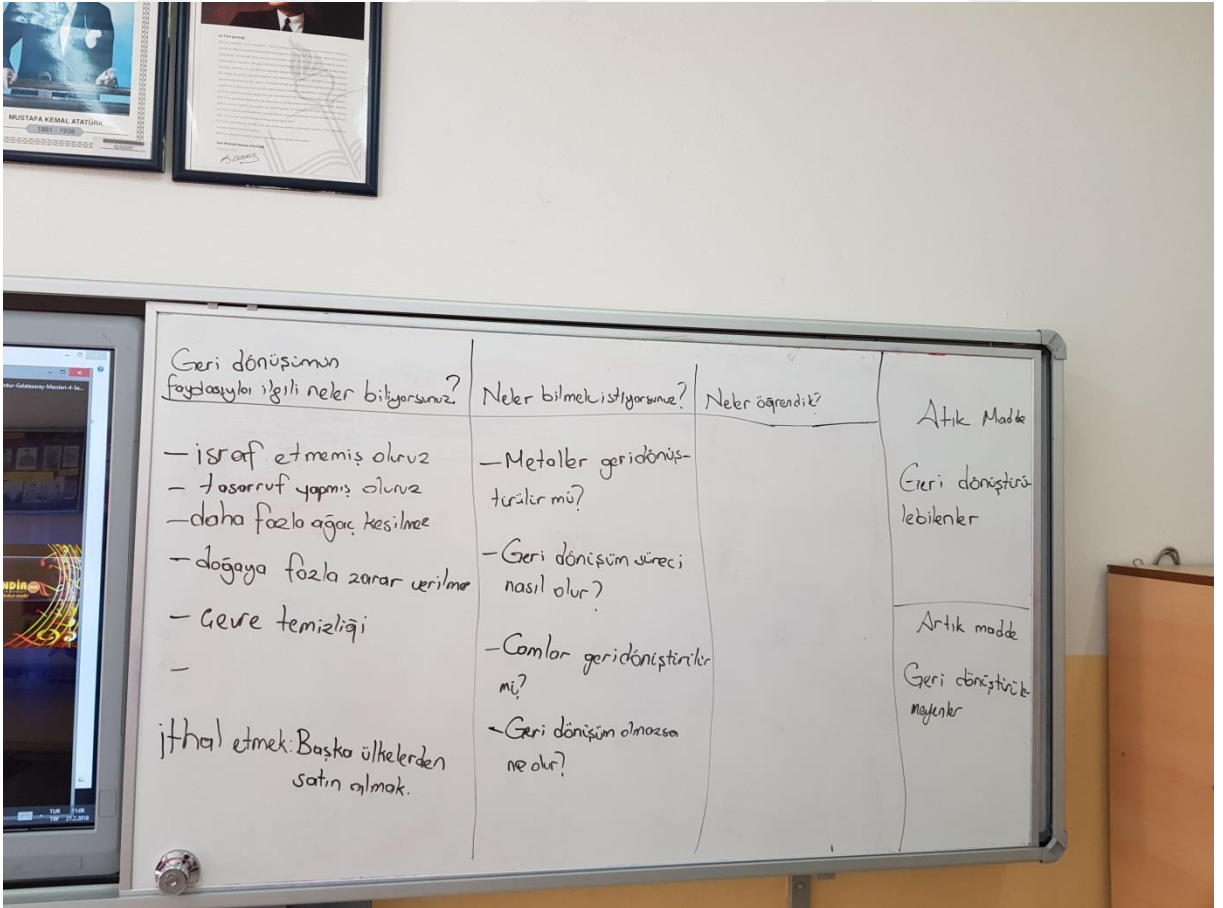 MUSTAFA KEMAL ATATÜRK
1881 - 1938
Ey Türk gençliği!
Geri dönüşümün
faydasıyla ilgili neler biliyorsunuz?
- israf etmemiş oluruz
- tasarruf yapmış oluruz
- daha fazla ağaç kesilmez
- doğaya fazla zarar verilmez
- Çevre temizliği
-
ithal etmek: Başka ülkelerden
satın almak.
Neler bilmek istiyorsunuz?
- Metaller geri dönüş-
türülür mü?
- Geri dönüşüm süreci
nasıl olur?
- Camlar geri dönüştürülür
mü?
- Geri dönüşüm olmazsa
ne olur?
Neler öğrendik?
Atık Madde
Geri dönüştürü-
lebilenler
Artık madde
Geri dönüştürüle-
meyenler
TUR 11:06
21.2.2018